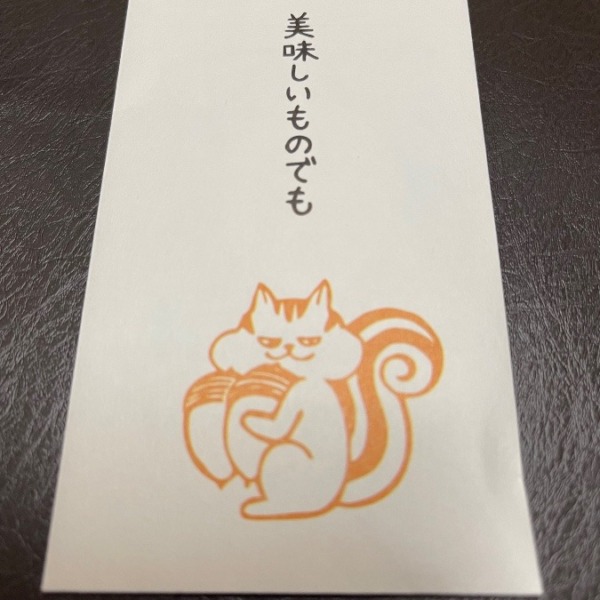 美味しいものでも